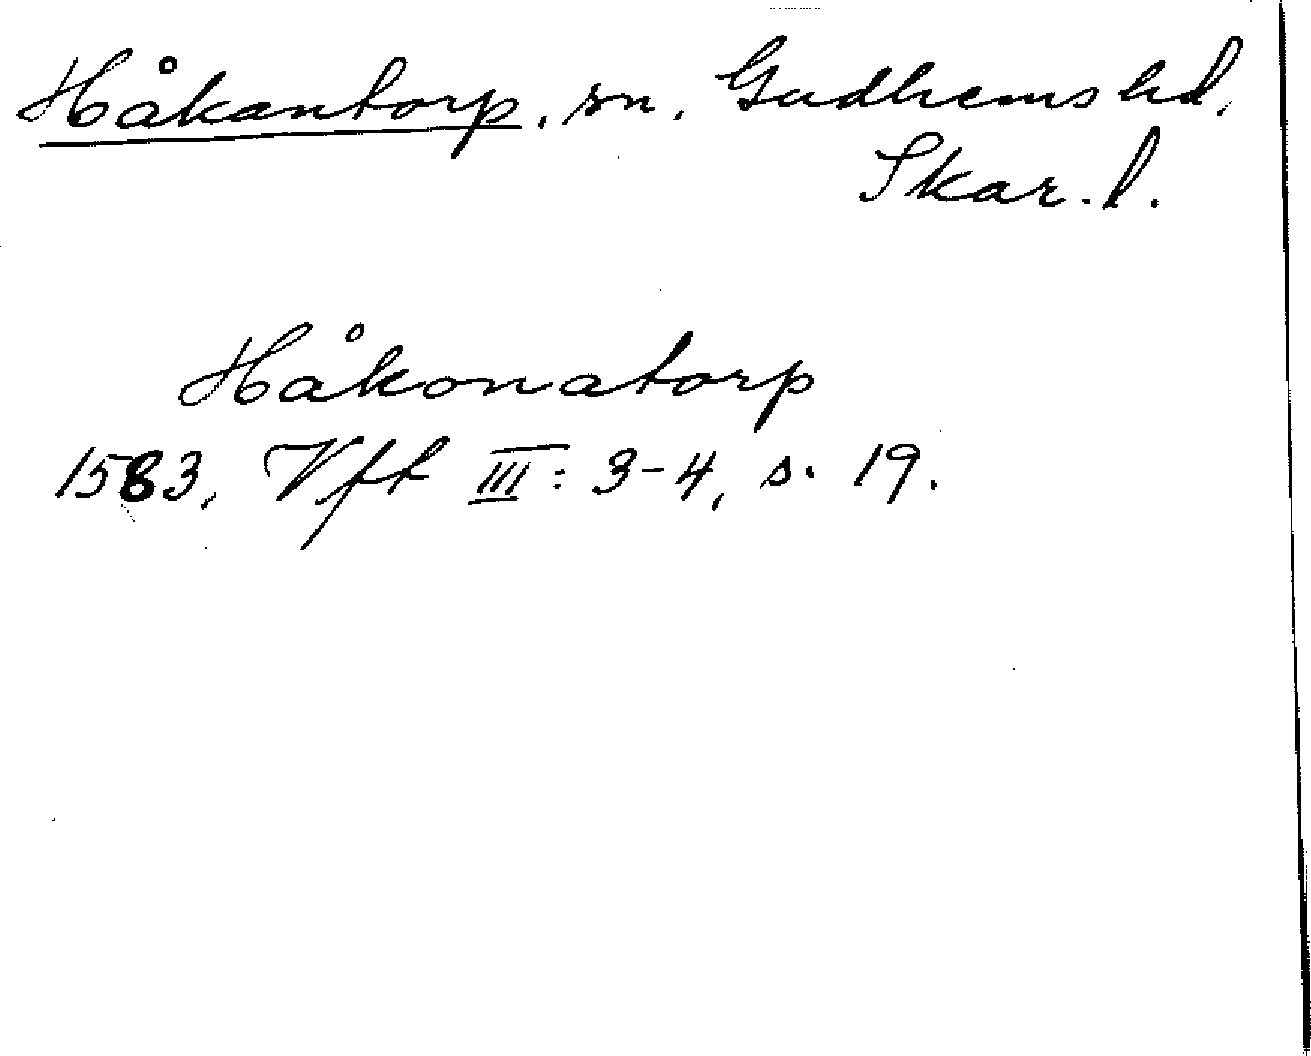 Håkantorp, sn, Gudhems hd,
Skar. l.
Håkonatorp
1583, Vft III: 3-4, s. 19.